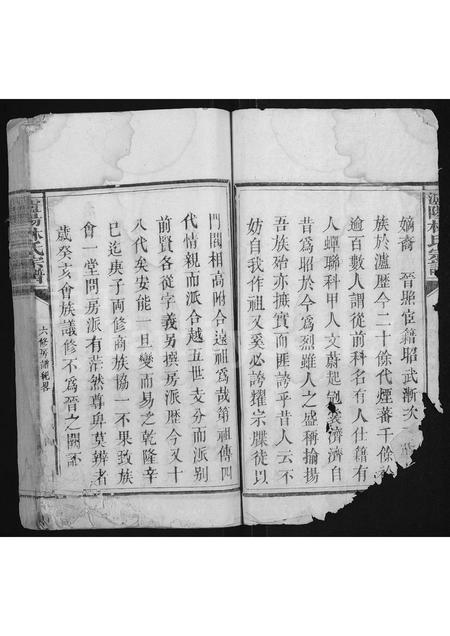 嫡裔 晉卿宦籍昭武漸次
族於瀘歷今二十餘代煙蕃千餘
逾百數人謂從前科名有人仕籍有
人蟬聯科甲人文蔚起冠裳濟濟自
昔爲昭於今爲烈雖人之盛稱揄揚
吾族殆亦摭實而匪誇乎昔人云不
妨自我作祖又奚必誇耀宗牒徒以
門閥相高附合遠祖爲哉第祖傳四
代情親而派合越五世支分而派別
前賢各從字義另撰房派歷今又十
八代矣安能一旦變而易之乾隆辛
巳迄庚子兩修商族協一不果致族
會一堂問房派有茫然尊卑莫辨者
歲癸亥會族議修不爲晉之闕
林氏宗譜
六修房譜紀畧